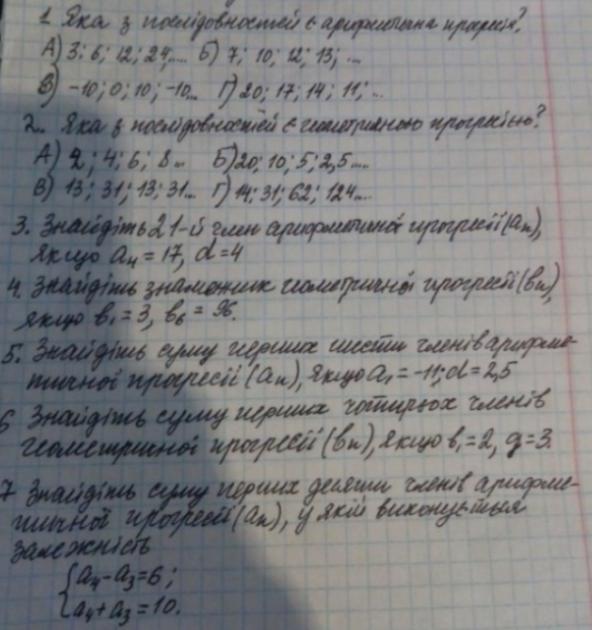 1. Яка з послідовностей є арифметична прогресія?
А) 3; 6; 12; 24;.... Б) 7; 10; 12; 13; ...
В) -10; 0; 10; -10... Г) 20; 17; 14; 11; ...
2. Яка з послідовностей є геометричною прогресією?
А) 2; 4; 6; 8... Б) 20; 10; 5; 2,5....
В) 13; 31; 13; 31... Г) 14; 31; 62; 124...
3. Знайдіть 21-й член арифметичної прогресії (an),
якщо a4 = 17, d = 4
4. Знайдіть знаменник геометричної прогресії (bn),
якщо b1 = 3, b6 = 96.
5. Знайдіть суму перших шести членів арифме-
тичної прогресії (an), якщо a1 = -11; d = 2,5
6 Знайдіть суму перших чотирьох членів
геометричної прогресії (bn), якщо b1 = 2, q = 3.
7 Знайдіть суму перших десяти членів арифме-
тичної прогресії (an), у якій виконується
залежність
{a4 - a3 = 6;
a4 + a3 = 10.